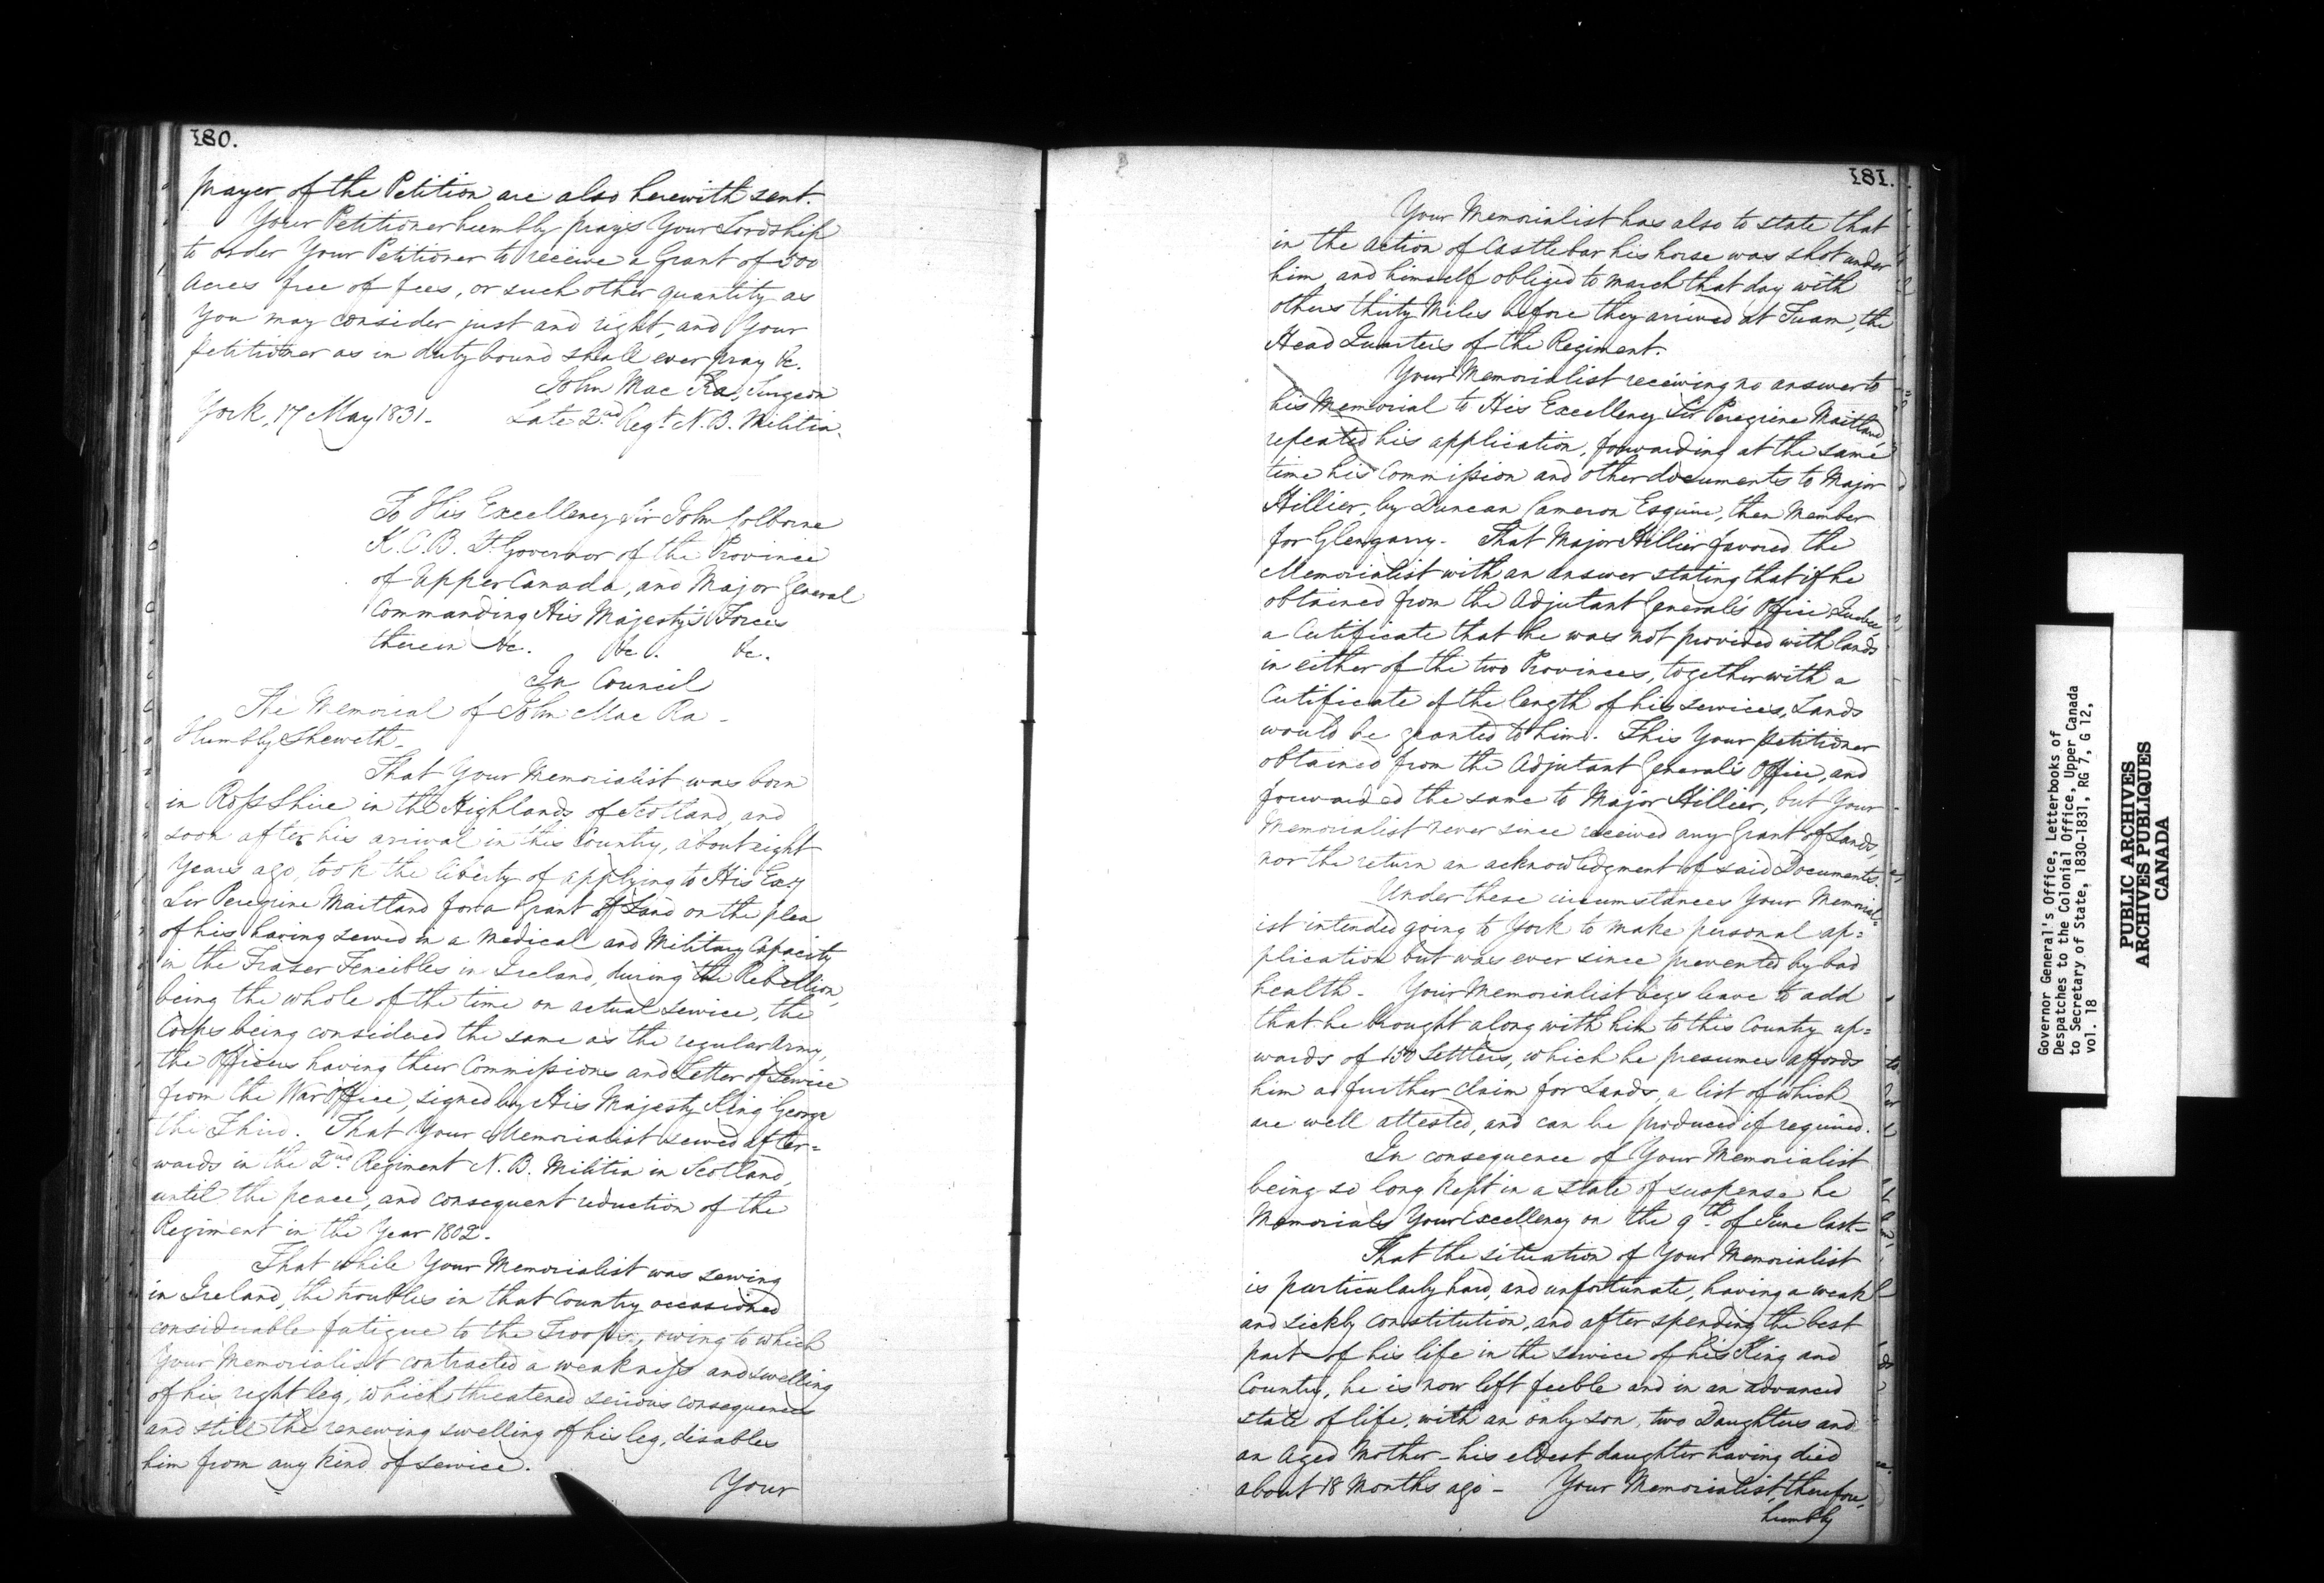 180.
prayer of the Petition are also herewith sent.
Your Petitioner humbly prays Your Lordship
to order Your Petitioner to receive a Grant of 500
Acres free of fees, or such other quantity as
You may consider just and right, and Your
petitioner as in duty bound shall ever pray &c.
John Mac Ra, Surgeon
York, 17 May 1831. Late 2nd Regt. N. B. Militia.
To His Excellency Sir John Colborne
K. C. B. Lt. Governor of the Province
of Upper Canada, and Major General
Commanding His Majesty's Forces
therein &c. &c. &c.
In Council
The Memorial of John Mac Ra -
Humbly Sheweth -
That Your Memorialist was born
in Ross Shire in the Highlands of Scotland, and
soon after his arrival in this Country, about eight
Years ago, took the liberty of applying to His Excy
Sir Peregrine Maitland for a Grant of Land on the plea
of his having served in a Medical and Military Capacity
in the Fraser Fencibles in Ireland, during the Rebellion,
being the whole of the time on actual service, the
Corps being considered the same as the regular Army,
the Officers having their Commissions and Letter of Service
from the War Office, signed by His Majesty King George
the Third. That Your Memorialist served after=
wards in the 2nd Regiment N. B. Militia in Scotland,
until the peace, and consequent reduction of the
Regiment in the Year 1802.
That while Your Memorialist was serving
in Ireland, the troubles in that Country occasioned
considerable fatigue to the Troops, owing to which
Your Memorialist contracted a weakness and swelling
of his right leg, which threatened serious consequences
and still the renewing swelling of his leg, disables
him from any kind of service.
Your
181.
Your Memorialist has also to state that
in the action of Castlebar his horse was shot under
him and himself obliged to march that day with
others thirty Miles before they arrived at Tuam, the
Head Quarters of the Regiment.
Your Memorialist receiving no answer to
his Memorial to His Excellency Sir Peregrine Maitland,
repeated his application, forwarding at the same
time his Commission and other documents to Major
Hillier, by Duncan Cameron Esquire, then Member
for Glengarry. That Major Hillier favored the
Memorialist with an answer stating that if he
obtained from the Adjutant General's Office Quebec
a Certificate that he was not provided with lands
in either of the two Provinces, together with a
Certificate of the length of his services, Lands
would be granted to him. This Your Petitioner
obtained from the Adjutant General's Office, and
forwarded the same to Major Hillier, but Your
Memorialist never since received any Grant of Lands,
nor the return an acknowledgment of said Documents.
Under these circumstances Your Memorial=
ist intended going to York to make personal ap=
plication but was ever since prevented by bad
health - Your Memorialist begs leave to add
that he brought along with him to this Country up=
wards of 150 Settlers, which he presumes affords
him a further claim for Lands, a list of which
are well attested, and can be produced if required.
In consequence of Your Memorialist
being so long kept in a state of suspense he
Memorials Your Excellency on the 9th of June last -
That the situation of Your Memorialist
is particularly hard, and unfortunate, having a weak
and sickly constitution, and after spending the best
part of his life in the service of his King and
Country, he is now left feeble and in an advanced
state of life, with an only son, two Daughters and
an aged Mother - his eldest daughter having died
about 18 Months ago - Your Memorialist, therefore,
humbly
Governor General's Office, Letterbooks of
Despatches to the Colonial Office, Upper Canada
to Secretary of State, 1830-1831, RG 7, G 12,
vol. 18
PUBLIC ARCHIVES
ARCHIVES PUBLIQUES
CANADA